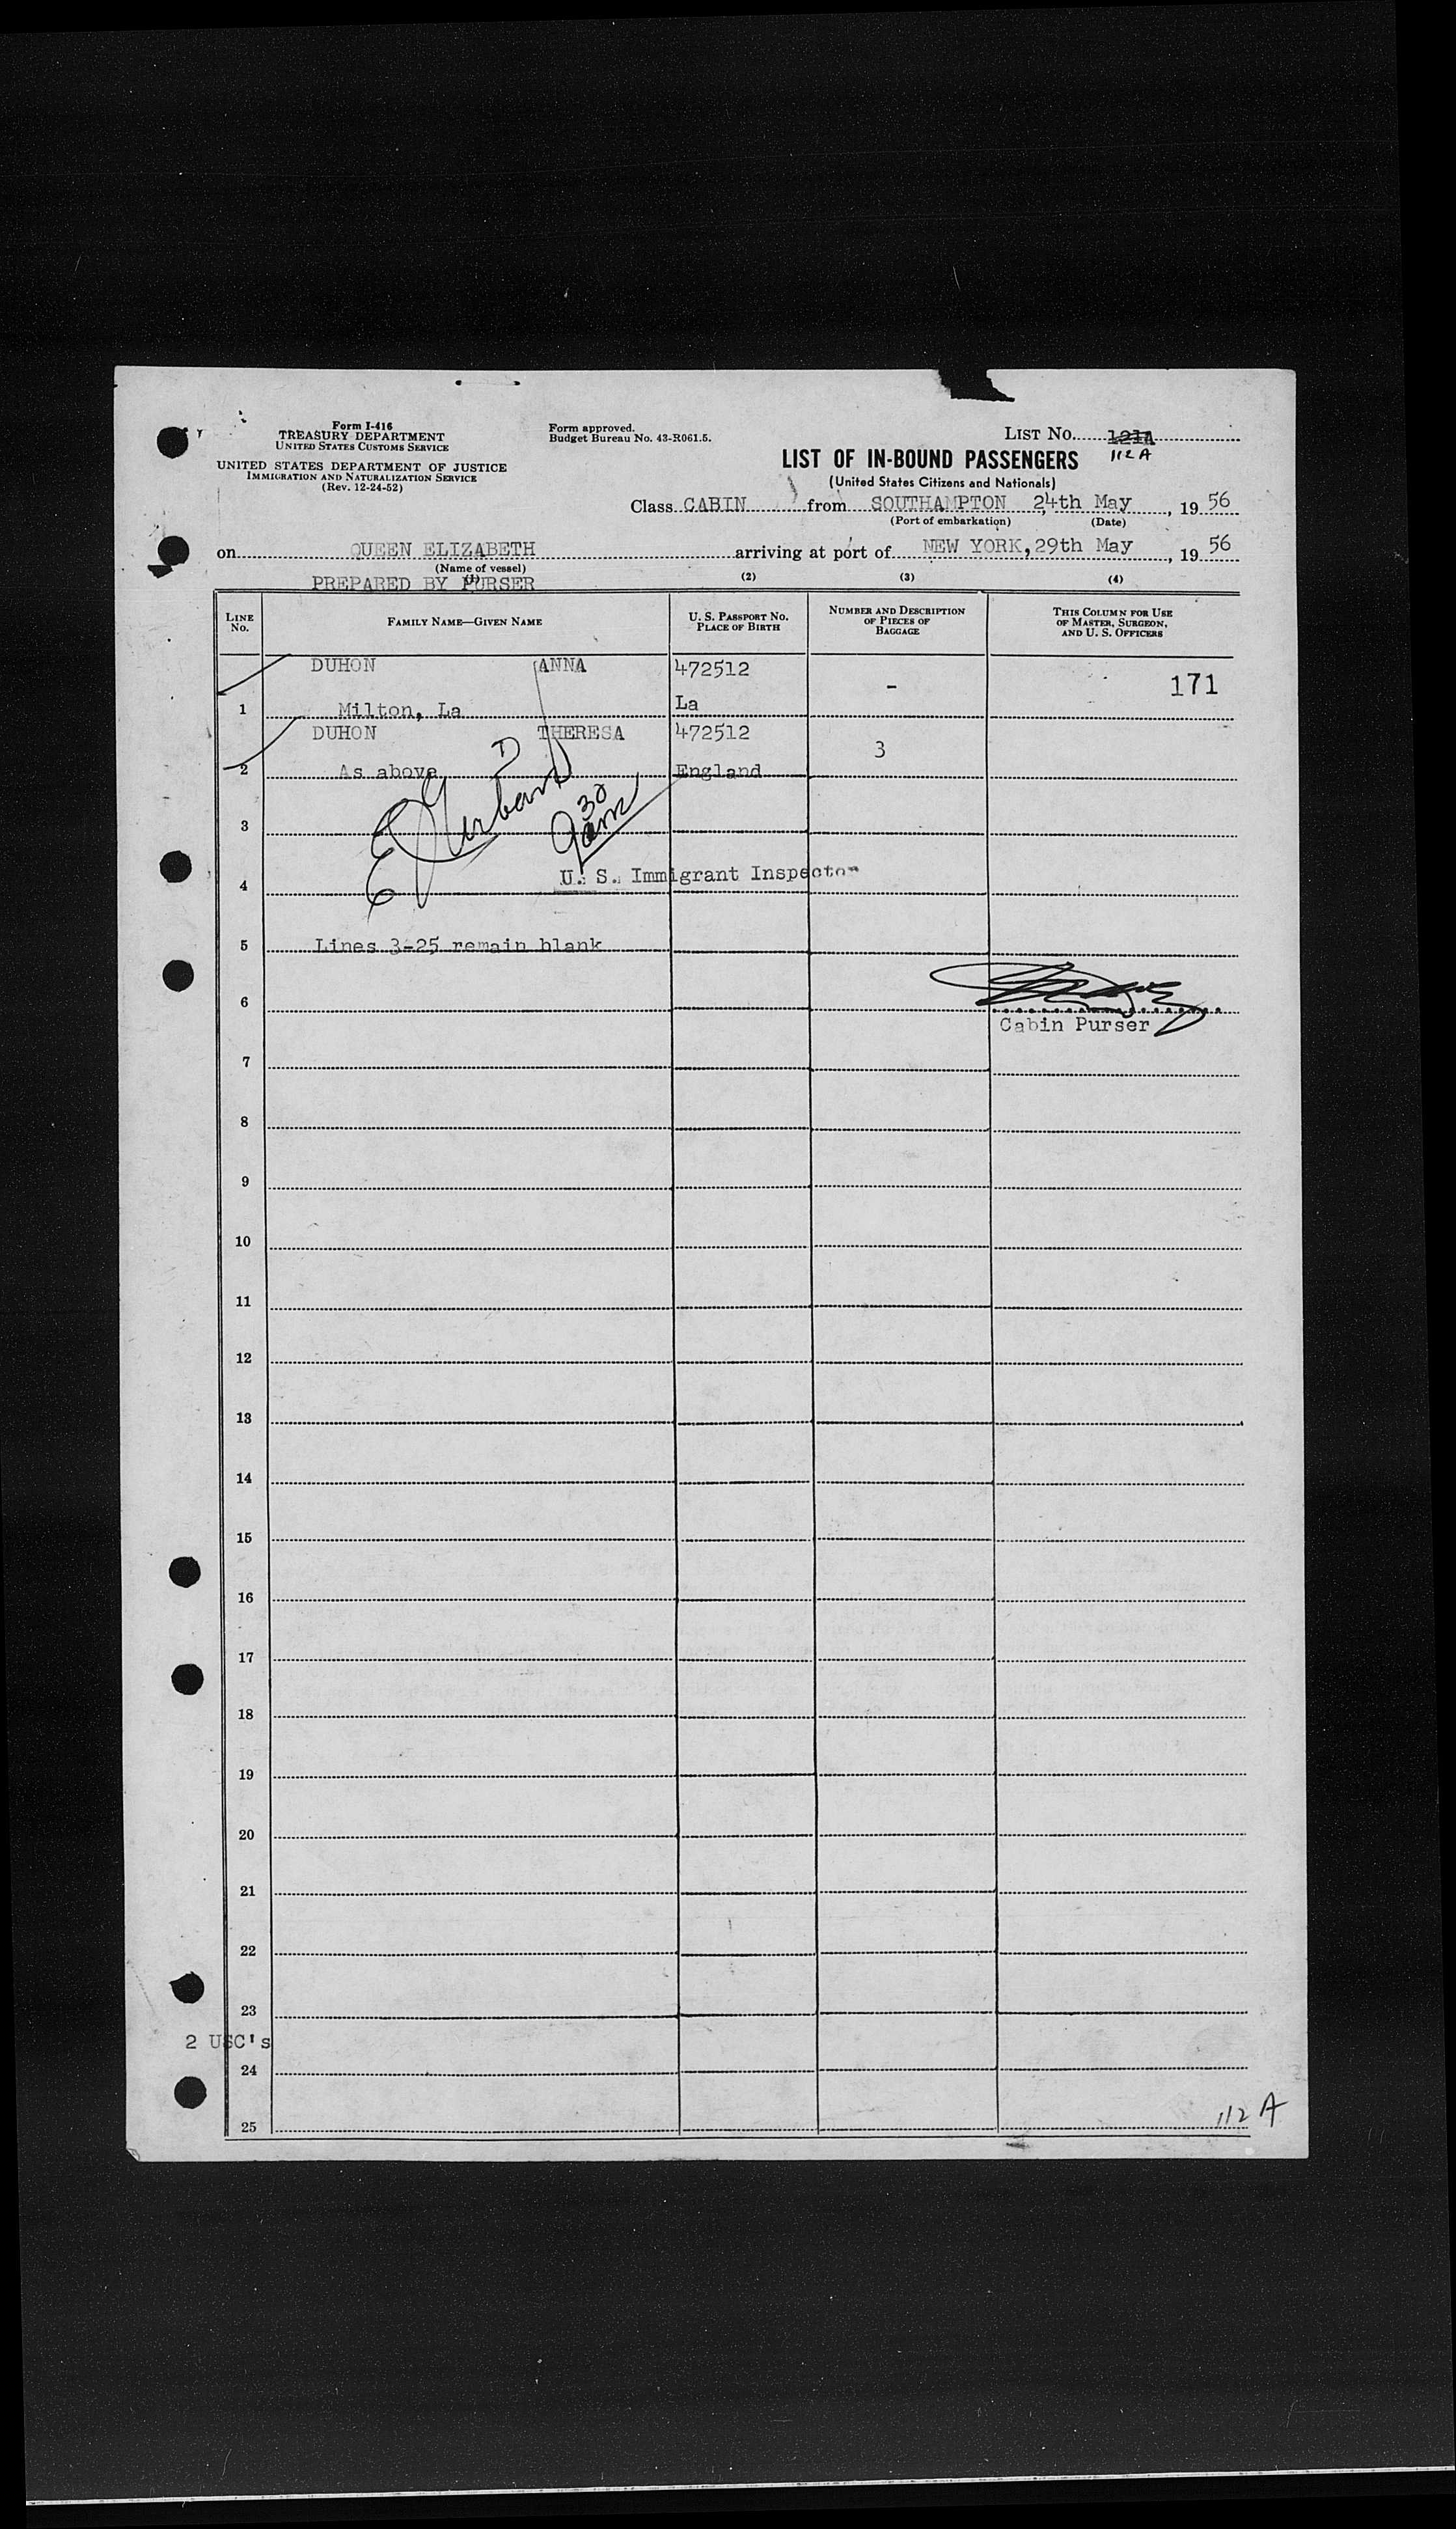 Form I-416
TREASURY DEPARTMENT
UNITED STATES CUSTOMS SERVICE
UNITED STATES DEPARTMENT OF JUSTICE
IMMIGRATION AND NATURALIZATION SERVICE
(Rev. 12-24-52)
Form approved.
Budget Bureau No. 43-R061.5.
LIST No. 121A
112 A
LIST OF IN-BOUND PASSENGERS
(United States Citizens and Nationals)
Class CABIN from SOUTHAMPTON 24th May, 19 56
(Port of embarkation) (Date)
on QUEEN ELIZABETH arriving at port of NEW YORK, 29th May, 19 56
(Name of vessel)
PREPARED BY PURSER
(1) (2) (3) (4)
LINE No. FAMILY NAME—GIVEN NAME U. S. PASSPORT No. PLACE OF BIRTH NUMBER AND DESCRIPTION OF PIECES OF BAGGAGE THIS COLUMN FOR USE OF MASTER, SURGEON, AND U. S. OFFICERS
DUHON ANNA 472512 - 171
1 Milton, La La
DUHON THERESA 472512 3
2 As above England
3
30
9am
U. S. Immigrant Inspector
4
5 Lines 3-25 remain blank
6
Cabin Purser
7
8
9
10
11
12
13
14
15
16
17
18
19
20
21
22
23
2 USC's
24
25
112 A